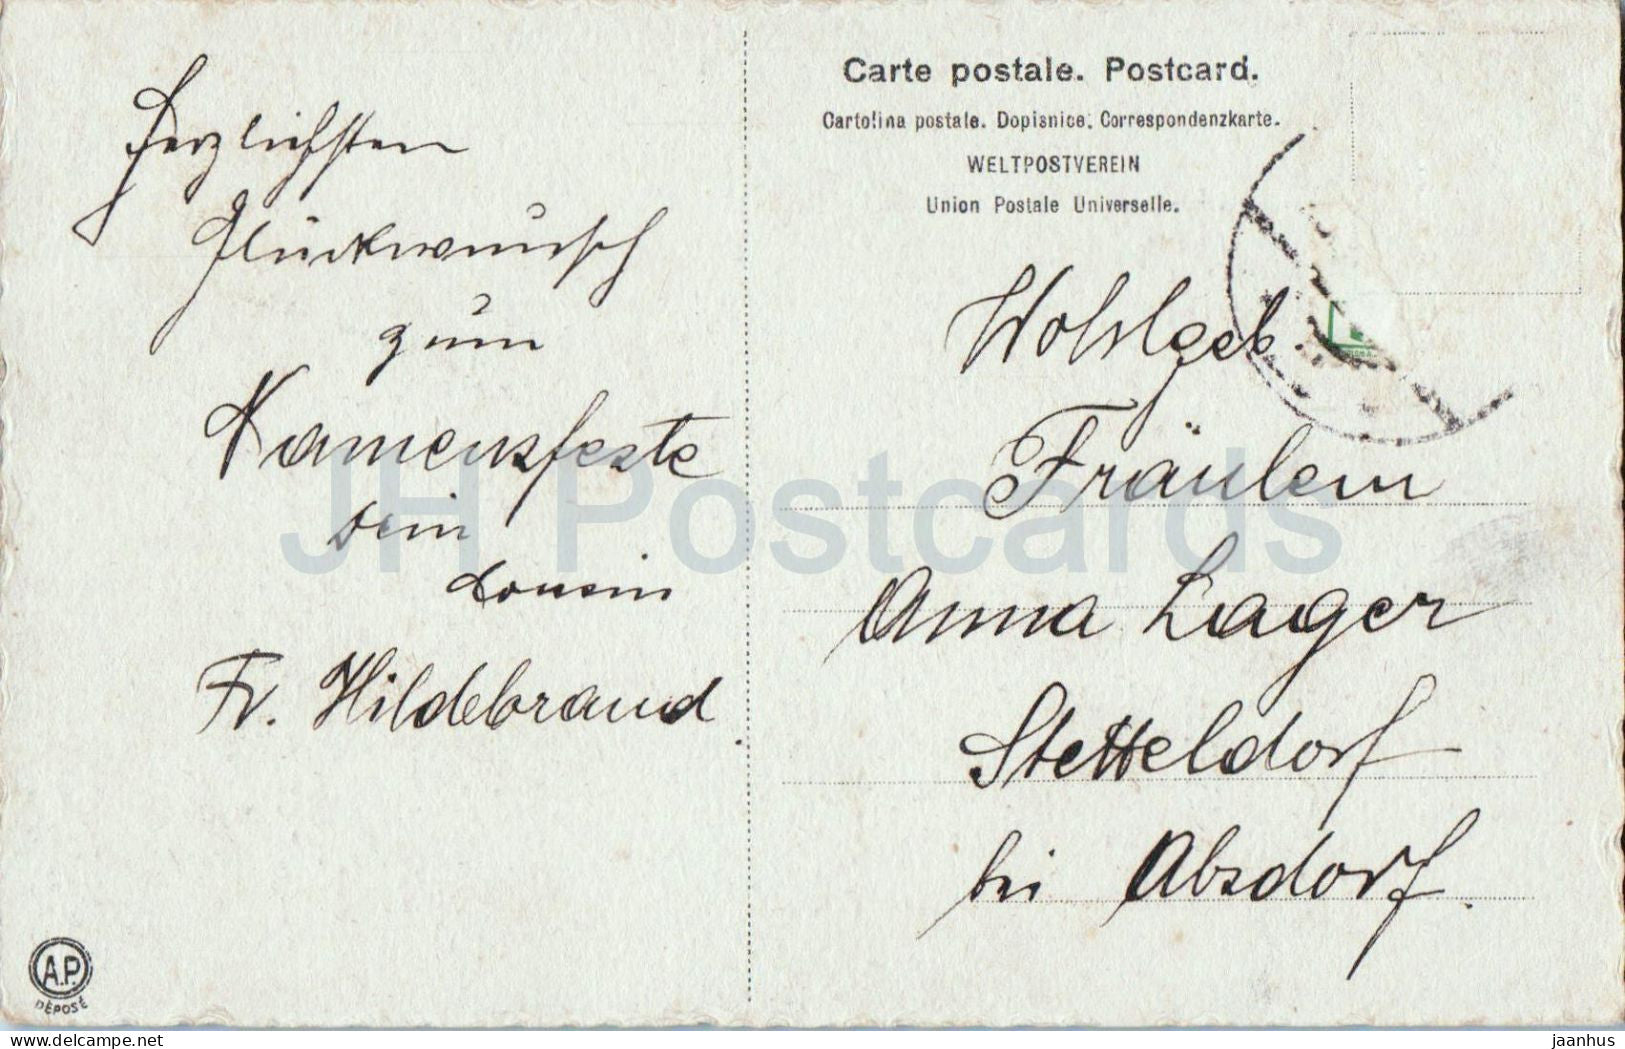 Herzlichsten
Glückwunsch
zum
Namensfeste
Dein
Cousin
Fr. Hildebrand.
Carte postale. Postcard.
Cartolina postale. Dopisnice. Correspondenzkarte.
WELTPOSTVEREIN
Union Postale Universelle.
Wohlgeb.
Fräulein
Anna Lager
Stetteldorf
bei Absdorf.
A.P.
DÉPOSÉ
JH Postcards
www.delcampe.net
jaanhus